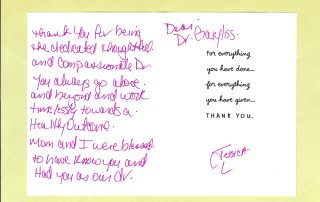 Thank You for being
the dedicated thoughtful
and compassionate Dr.
You always go above
and beyond and work
tirelessly towards a
Healthy Outcome.
Mom and I were blessed
to have know you and
Had you as our dr.
Dear
Dr.
For everything
you have done...
for everything
you have given...
THANK YOU.
Jessica
L